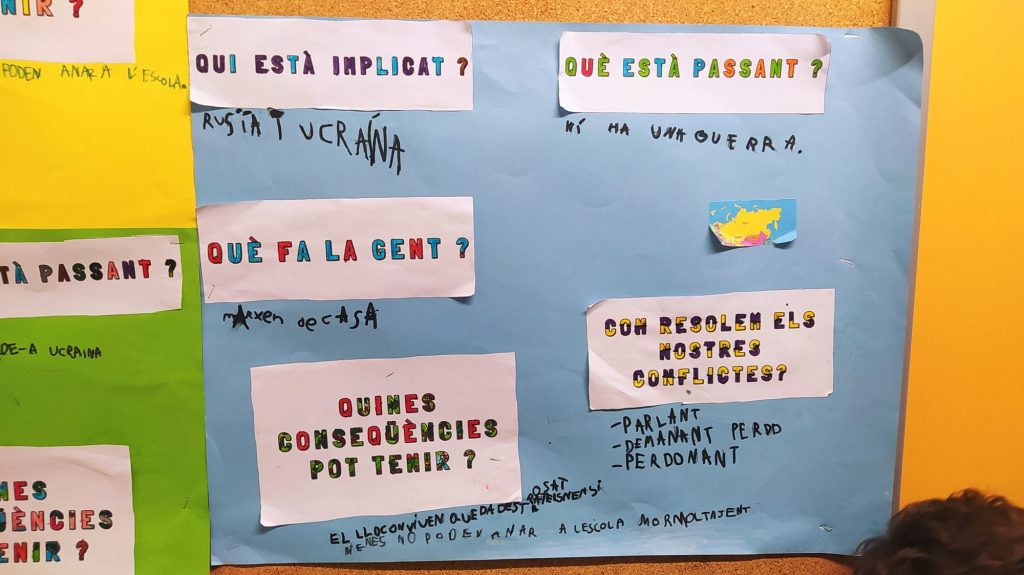 NIR ?
PODEN ANAR A L'ESCOLA.
TÀ PASSANT ?
DE-A UCRAINA
NES
ÜÈNCIES
ENIR ?
QUI ESTÀ IMPLICAT ?
RUSÍA I UCRAÍNA
QUÈ ESTÀ PASSANT ?
HÍ HA UNA GUERRA.
QUÈ FA LA GENT ?
MARXEN DE CASA
COM RESOLEM ELS
NOSTRES
CONFLICTES?
-PARLANT
-DEMANANT PERDO
-PERDONANT
QUINES
CONSEQÜÈNCIES
POT TENIR ?
EL LLOC ON VIVEN QUEDA DEST
OSAT
NENES NO PODEN ANAR A LESCOLA